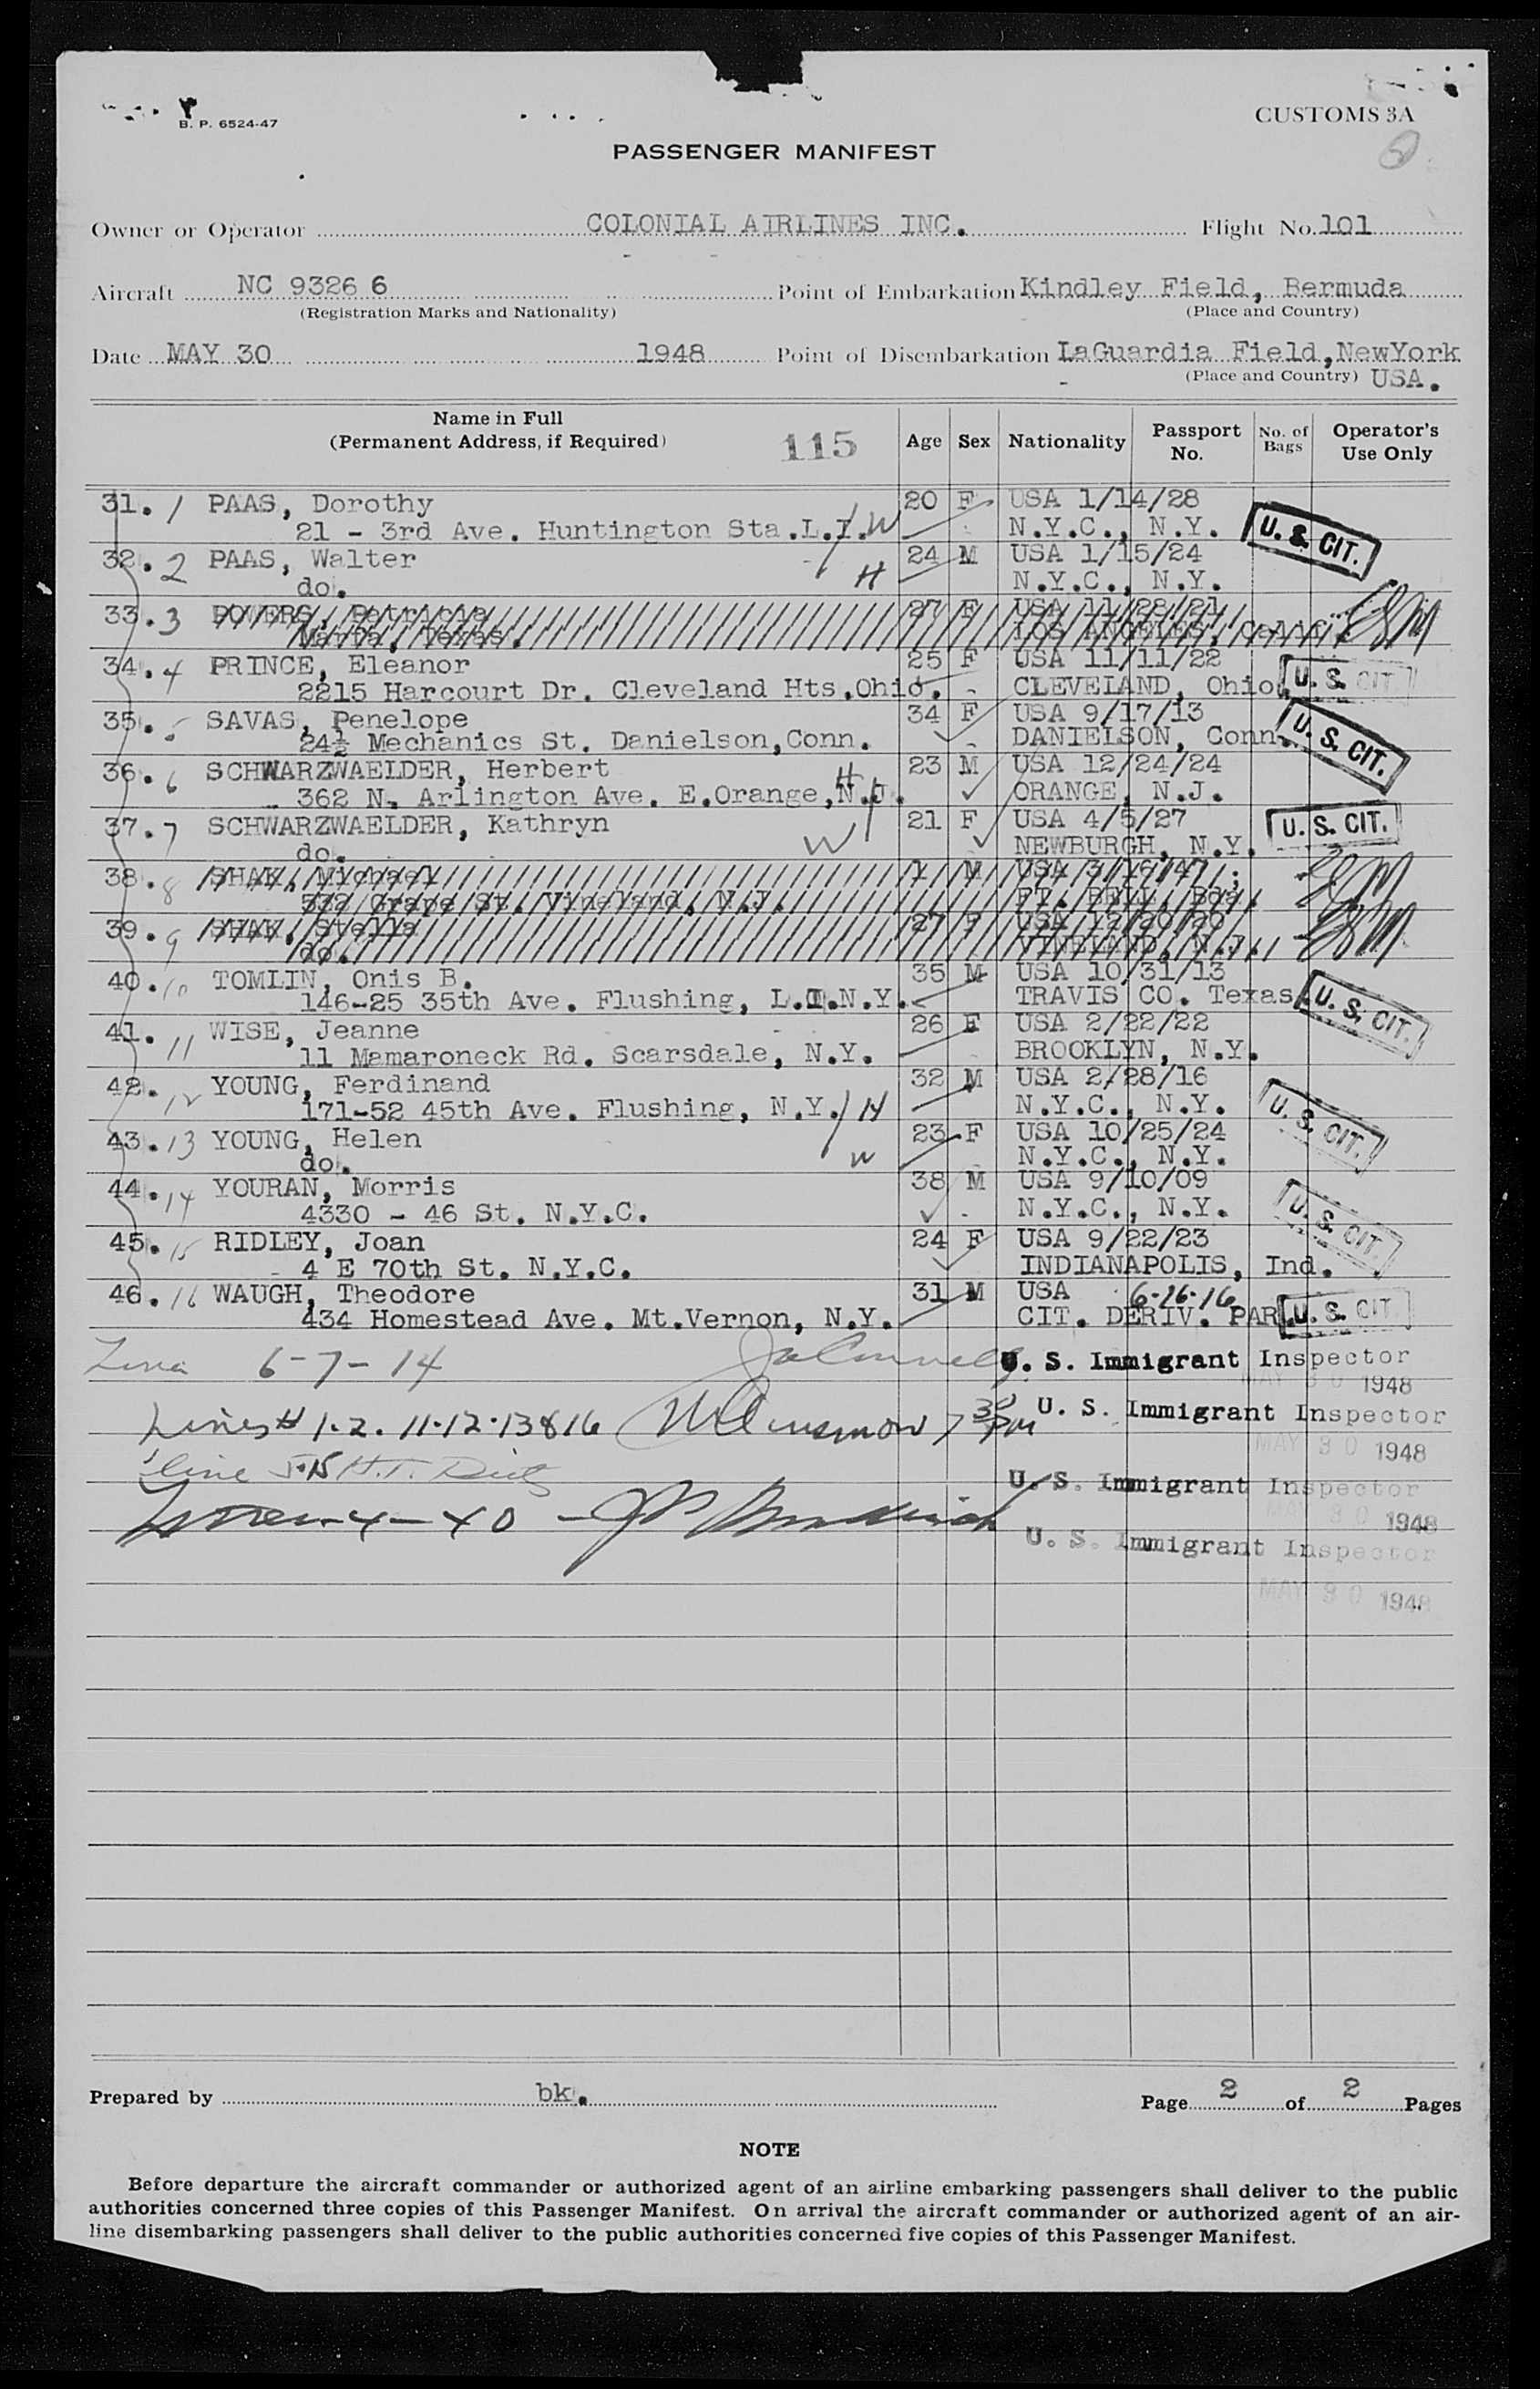 B. P. 6524-47
CUSTOMS 3A
2
PASSENGER MANIFEST
Owner or Operator COLONIAL AIRLINES INC. Flight No. 101
Aircraft NC 9326 6 Point of Embarkation Kindley Field, Bermuda
(Registration Marks and Nationality) (Place and Country)
Date MAY 30 1948 Point of Disembarkation LaGuardia Field, NewYork
(Place and Country) USA.
Name in Full
(Permanent Address, if Required) 115 Age Sex Nationality Passport No. No. of Bags Operator's Use Only
31. 1 PAAS, Dorothy 20 F USA 1/14/28
21 - 3rd Ave. Huntington Sta.L.I. W N.Y.C., N.Y. U. S. CIT.
32. 2 PAAS, Walter 24 M USA 1/15/24
do. H N.Y.C., N.Y.
33. 3 POWERS, Patricia 27 F USA 11/28/21
Marfa, Texas. LOS ANGELES, Calif.
34. 4 PRINCE, Eleanor 25 F USA 11/11/22
2215 Harcourt Dr. Cleveland Hts.Ohio. CLEVELAND, Ohio. U. S. CIT
35. 5 SAVAS, Penelope 34 F USA 9/17/13
24½ Mechanics St. Danielson,Conn. DANIELSON, Conn. U. S. CIT.
36. 6 SCHWARZWAELDER, Herbert 23 M USA 12/24/24
362 N. Arlington Ave. E.Orange,N.J. H ORANGE, N.J.
37. 7 SCHWARZWAELDER, Kathryn 21 F USA 4/5/27 U. S. CIT.
do. W NEWBURGH, N.Y.
38. 8 SHAK, Michael 1 M USA 3/16/47
532 Grape St. Vineland, N.J. FT. BELL, Bda.
39. 9 SHAK, Stella 27 F USA 12/20/20
do. VINELAND, N.J.
40. 10 TOMLIN, Onis B. 35 M USA 10/31/13
146-25 35th Ave. Flushing, L.I.N.Y. TRAVIS CO. Texas. U. S. CIT.
41. 11 WISE, Jeanne 26 F USA 2/22/22
11 Mamaroneck Rd. Scarsdale, N.Y. BROOKLYN, N.Y.
42. 12 YOUNG, Ferdinand 32 M USA 2/28/16
171-52 45th Ave. Flushing, N.Y. H N.Y.C., N.Y. U. S. CIT.
43. 13 YOUNG, Helen 23 F USA 10/25/24
do. W N.Y.C., N.Y.
44. 14 YOURAN, Morris 38 M USA 9/10/09
4330 - 46 St. N.Y.C. N.Y.C., N.Y. U. S. CIT.
45. 15 RIDLEY, Joan 24 F USA 9/22/23
4 E 70th St. N.Y.C. INDIANAPOLIS, Ind.
46. 16 WAUGH, Theodore 31 M USA 6-26-16
434 Homestead Ave. Mt.Vernon, N.Y. CIT. DERIV. PAR. U. S. CIT
6-7-14 U. S. Immigrant Inspector
MAY 30 1948
Lines # 1-2. 11-12-13&16 7 30 PM U. S. Immigrant Inspector
MAY 30 1948
line 5-15 U. S. Immigrant Inspector
MAY 30 1948
U. S. Immigrant Inspector
MAY 30 1948
Prepared by bk. Page 2 of 2 Pages
NOTE
Before departure the aircraft commander or authorized agent of an airline embarking passengers shall deliver to the public
authorities concerned three copies of this Passenger Manifest. On arrival the aircraft commander or authorized agent of an air-
line disembarking passengers shall deliver to the public authorities concerned five copies of this Passenger Manifest.